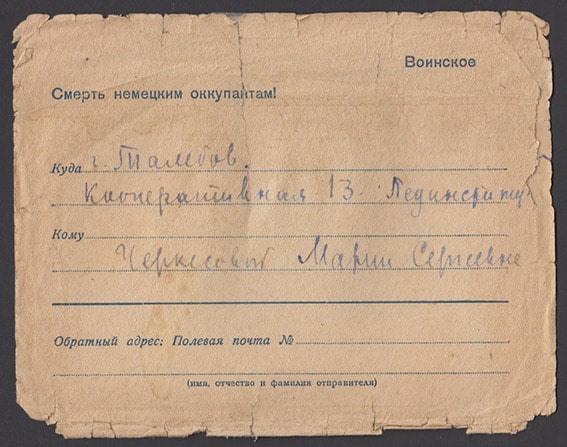 Воинское
Смерть немецким оккупантам!
Куда г. Талебов.
Кооперативная 13. Пединститу
Кому
Черкесовой Марии Сергеевне
Обратный адрес: Полевая почта №
(имя, отчество и фамилия отправителя)